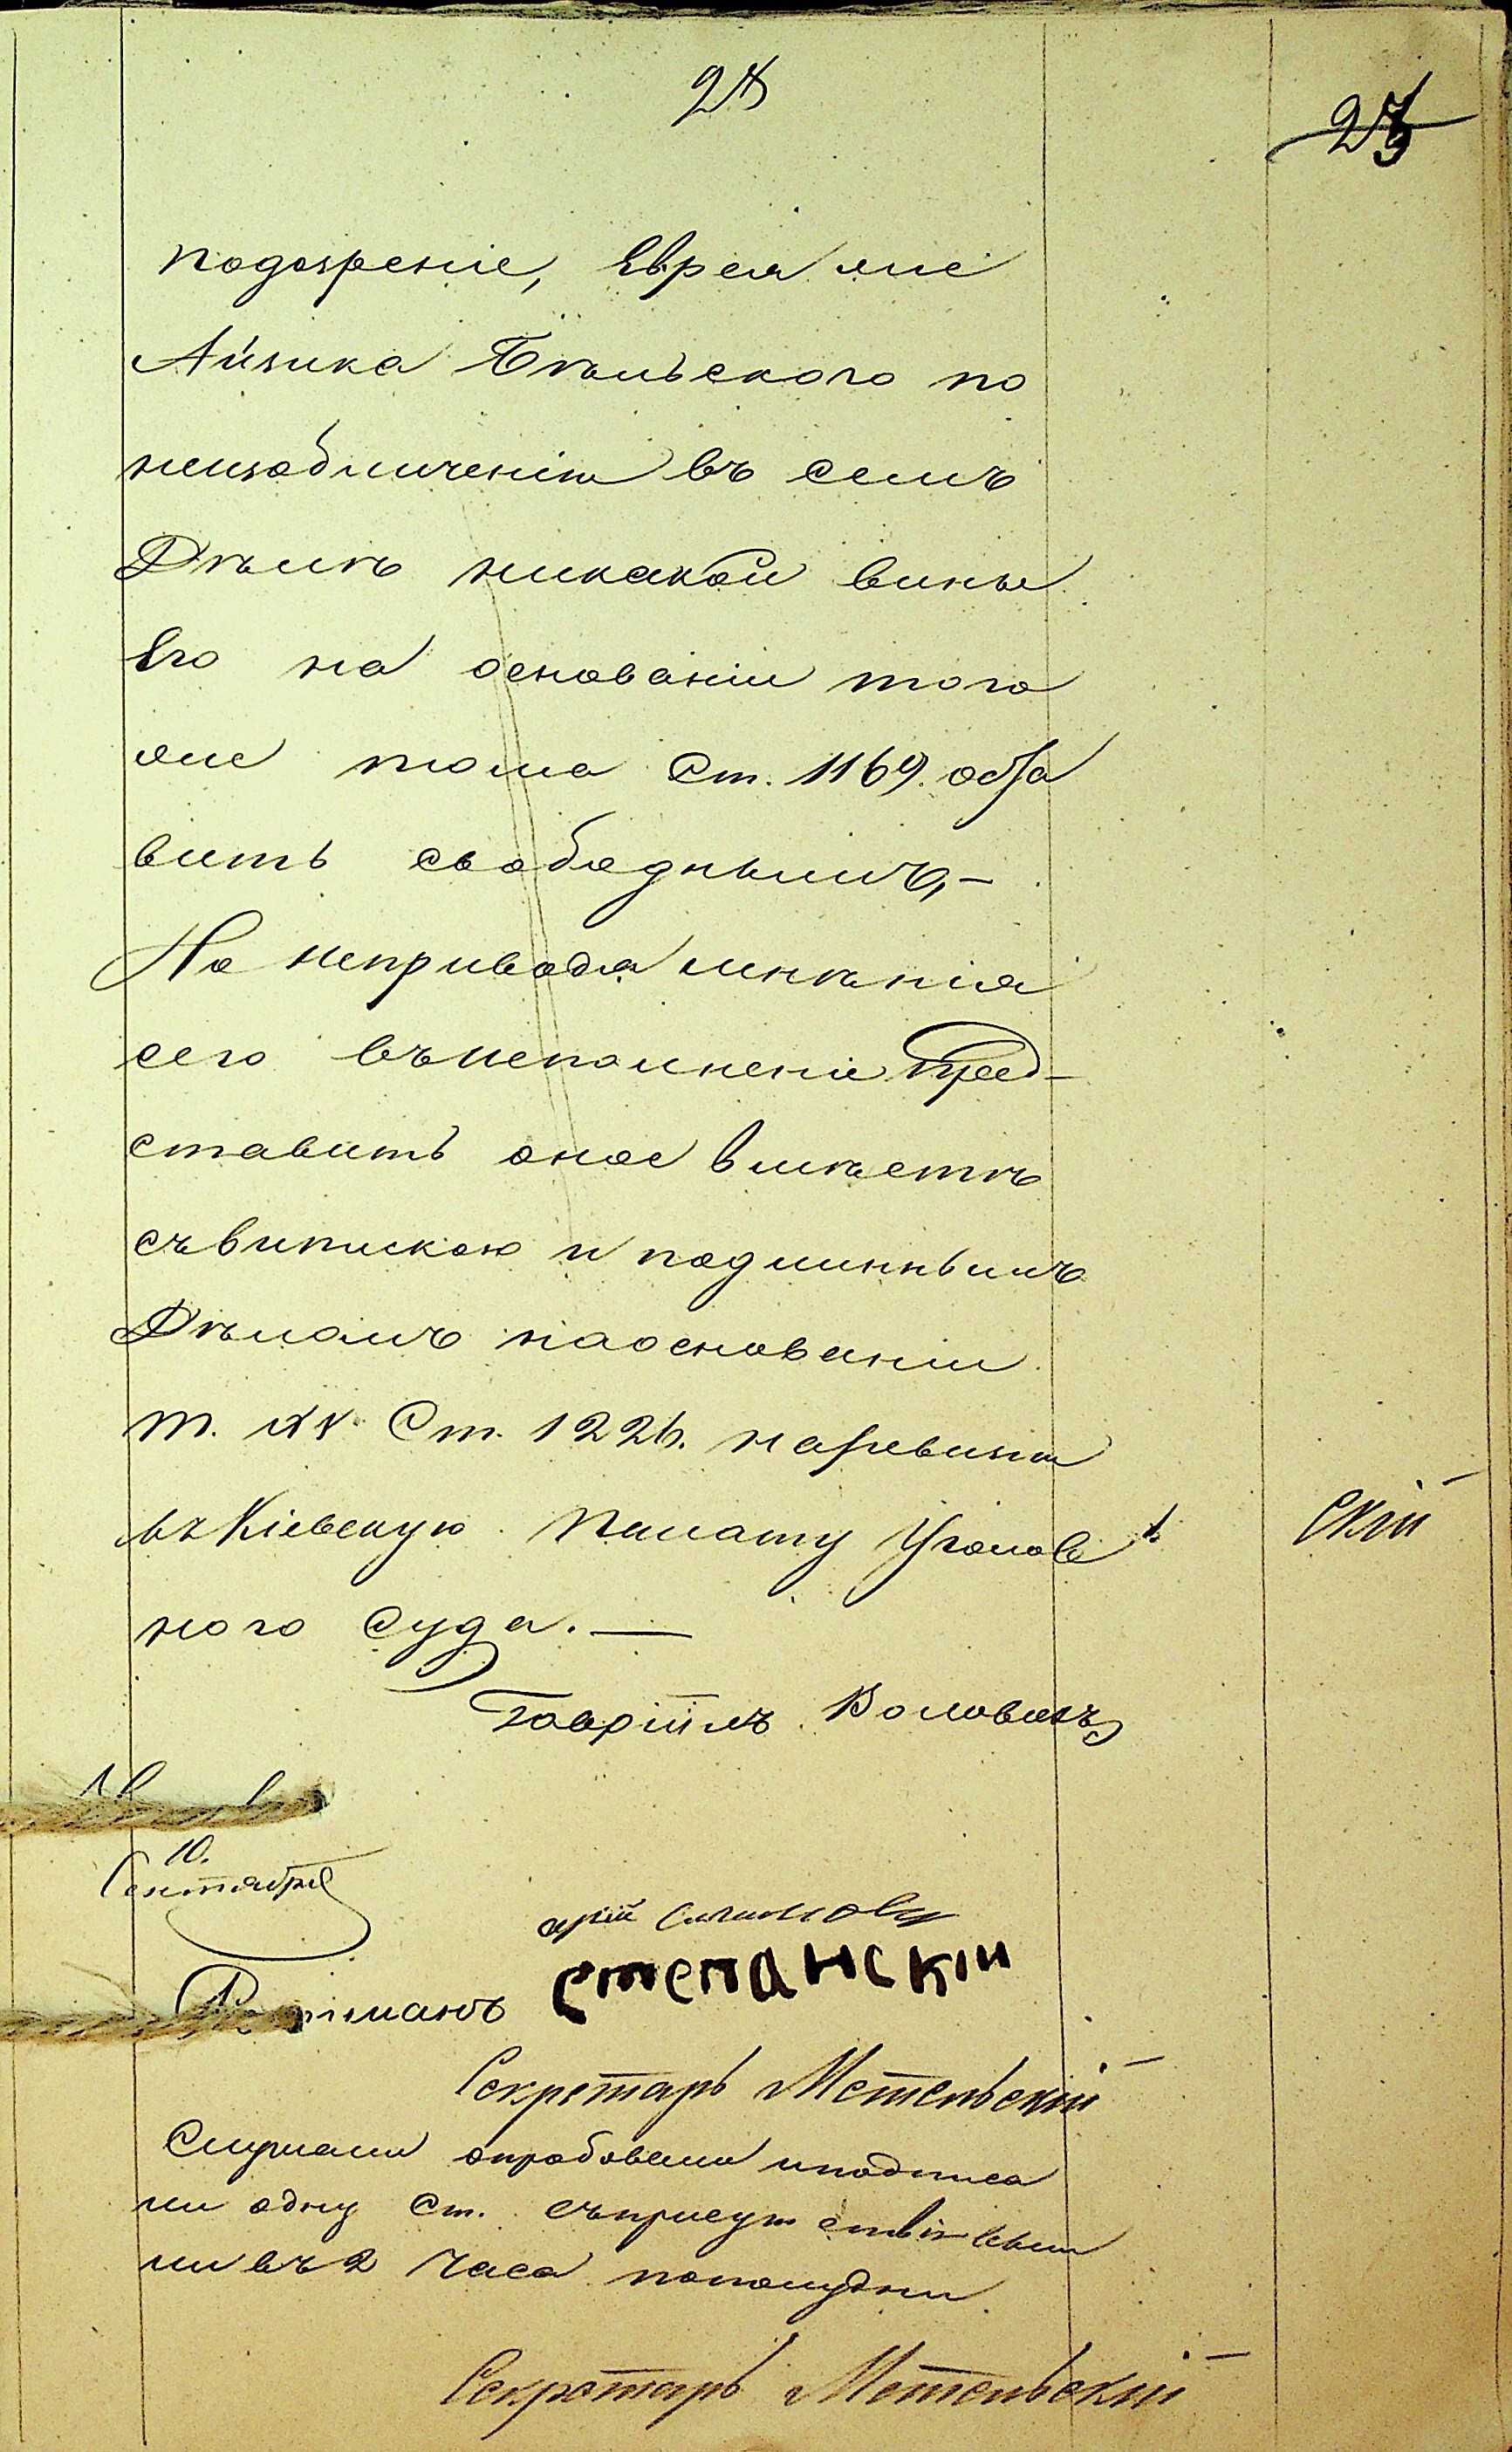 28
подозреніе, Еврея же
Айзика Бѣльского по
неизобличенію въ семъ
Дѣлѣ никакой вины
Его на основаніи того
же тома Ст. 1169. оста
вить свободнымъ,—
Но неприводя мнѣнія
сего въ исполненіе Пред-
ставить оное вмѣстѣ
съ выпискою и подлиннымъ
Дѣломъ на основаніи
т. XV Ст. 1226. на ревизію
въ Кіевскую Палату Уголов
ного Суда.—
скій
Гавріилъ
10.
Сентября
степанскій
Секретарь Метельскій
Слушали опробовали и подписа
ли одну Ст. съ присутствія вышли
въ 2 часа пополудни
Секретарь Метельскій